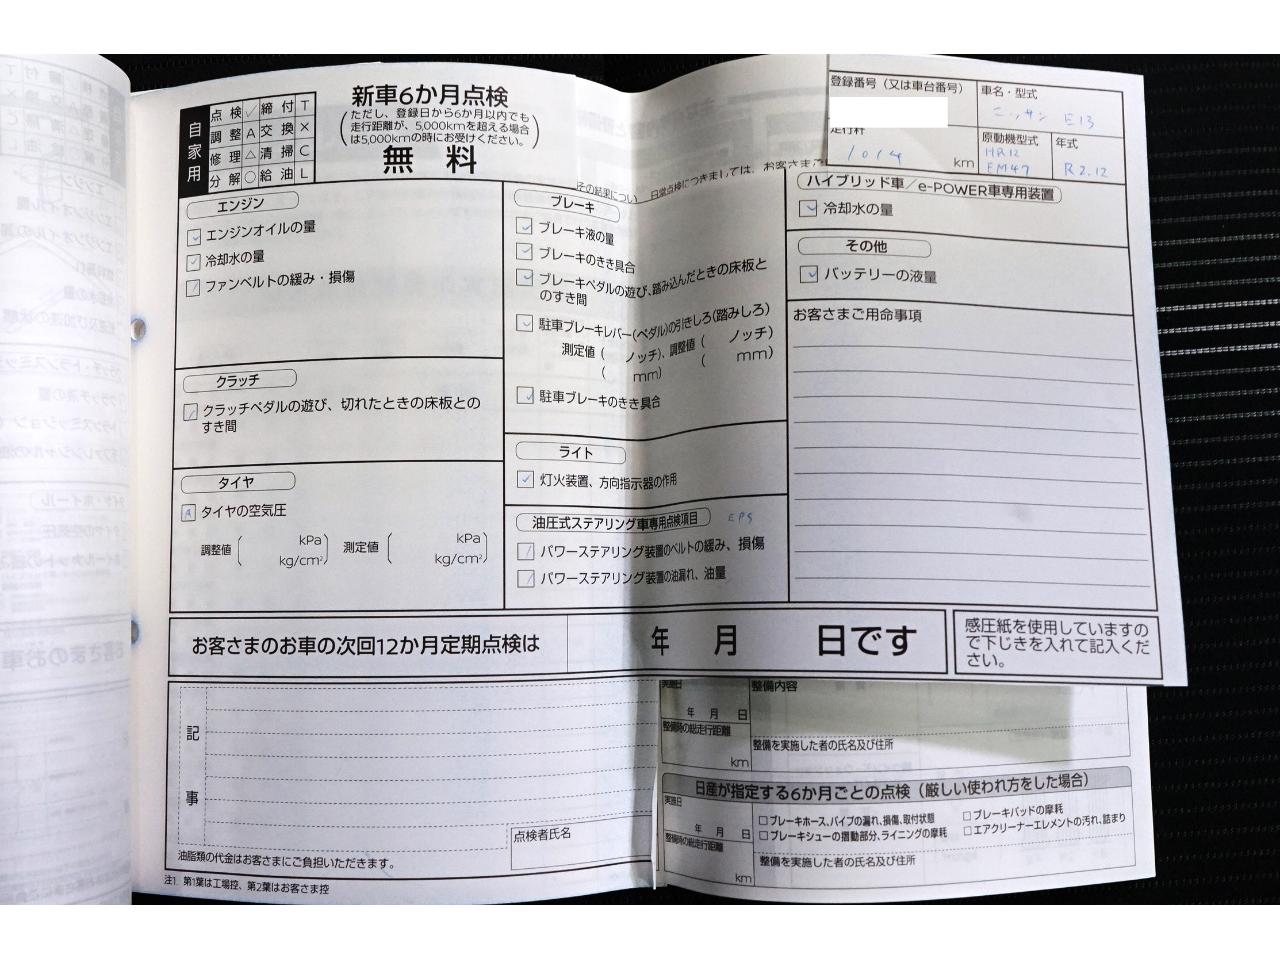 自家用
点検 ✓ 締付 T
調整 A 交換 ×
修理 △ 清掃 C
分解 ○ 給油 L
新車6か月点検
(ただし、登録日から6か月以内でも
走行距離が、5,000kmを超える場合
は5,000kmの時にお受けください。)
無 料
登録番号（又は車台番号）
車名・型式
ニッサン E13
走行粁
1014 km
原動機型式
HR12
EM47
年式
R2.12
その結果につい
日常点検につきましては、お客さまご
エンジン
✓ エンジンオイルの量
✓ 冷却水の量
/ ファンベルトの緩み・損傷
クラッチ
/ クラッチペダルの遊び、切れたときの床板との
すき間
タイヤ
A タイヤの空気圧
調整値 ( kPa kg/cm² ) 測定値 ( kPa kg/cm² )
ブレーキ
✓ ブレーキ液の量
✓ ブレーキのきき具合
✓ ブレーキペダルの遊び、踏み込んだときの床板と
のすき間
✓ 駐車ブレーキレバー(ペダル)の引きしろ(踏みしろ)
測定値 ( ノッチ)、調整値 ( ノッチ)
( mm) ( mm)
✓ 駐車ブレーキのきき具合
ライト
✓ 灯火装置、方向指示器の作用
油圧式ステアリング車専用点検項目 EPS
/ パワーステアリング装置のベルトの緩み、損傷
/ パワーステアリング装置の油漏れ、油量
ハイブリッド車／e-POWER車専用装置
✓ 冷却水の量
その他
✓ バッテリーの液量
お客さまご用命事項
お客さまのお車の次回12か月定期点検は 年 月 日です
感圧紙を使用していますの
で下じきを入れて記入くだ
さい。
記事
点検者氏名
油脂類の代金はお客さまにご負担いただきます。
注1. 第1葉は工場控、第2葉はお客さま控
実施日
年 月 日
整備内容
整備時の総走行距離
km
整備を実施した者の氏名及び住所
日産が指定する6か月ごとの点検（厳しい使われ方をした場合）
実施日
年 月 日
整備時の総走行距離
km
□ブレーキホース、パイプの漏れ、損傷、取付状態
□ブレーキパッドの摩耗
□ブレーキシューの摺動部分、ライニングの摩耗
□エアクリーナーエレメントの汚れ、詰まり
整備を実施した者の氏名及び住所